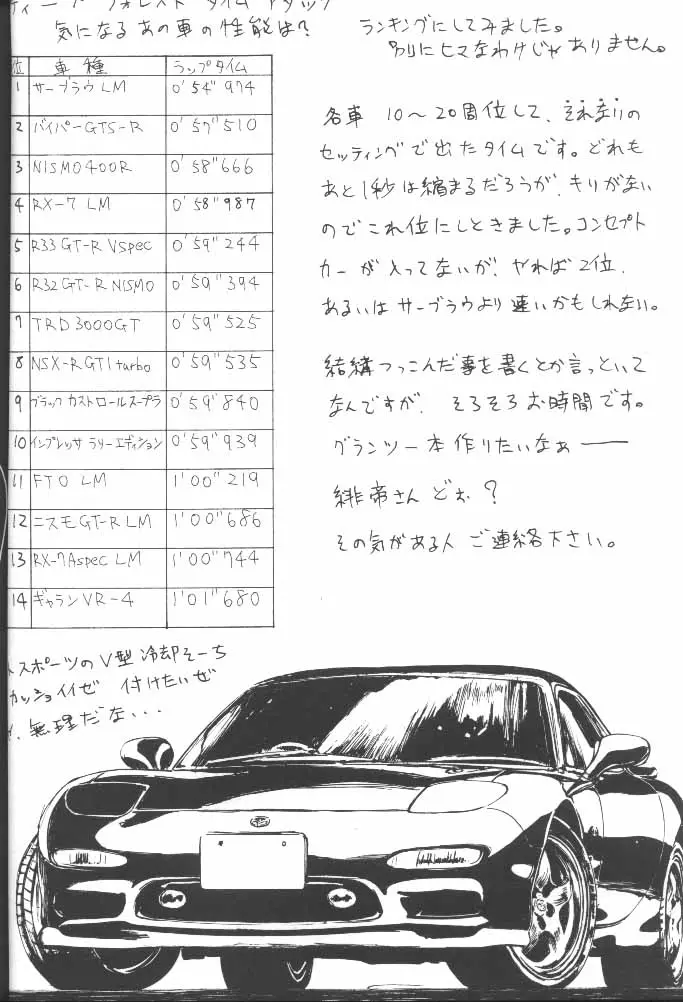 ディープ フォレスト タイム アタック
気になるあの車の性能は?
ランキングにしてみました。
別にヒマなわけじゃありません。
位 車種 ラップタイム
1 サーブラウLM 0'54"974
2 バイパーGTS-R 0'57"510
3 NISMO400R 0'58"666
4 RX-7 LM 0'58"987
5 R33 GT-R Vspec 0'59"244
6 R32 GT-R NISMO 0'59"394
7 TRD3000GT 0'59"525
8 NSX-R GT1 turbo 0'59"535
9 ブラック カストロールスープラ 0'59"840
10 インプレッサ ラリーエディション 0'59"939
11 FTO LM 1'00"219
12 ニスモGT-R LM 1'00"686
13 RX-7 Aspec LM 1'00"744
14 ギャランVR-4 1'01"680
各車 10〜20周位して、それなりの
セッティングで出たタイムです。どれも
あと1秒は縮まるだろうが、キリがない
のでこれ位にしときました。コンセプト
カーが入ってないが、やれば2位、
あるいはサーブラウより速いかもしれない。
結構つっこんだ事を書くとか言っといて
なんですが、そろそろお時間です。
グランツー本作りたいなぁー
緋帝さんどぉ?
その気がある人ご連絡下さい。
スポーツのV型冷却そーち
カッショイイゼ 付けたいぜ
無理だな...